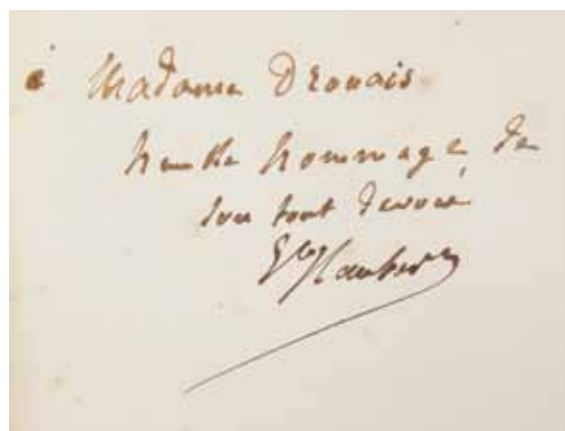 à Madame Drouais
humble hommage de
son tout dévoué
Gve Flaubert